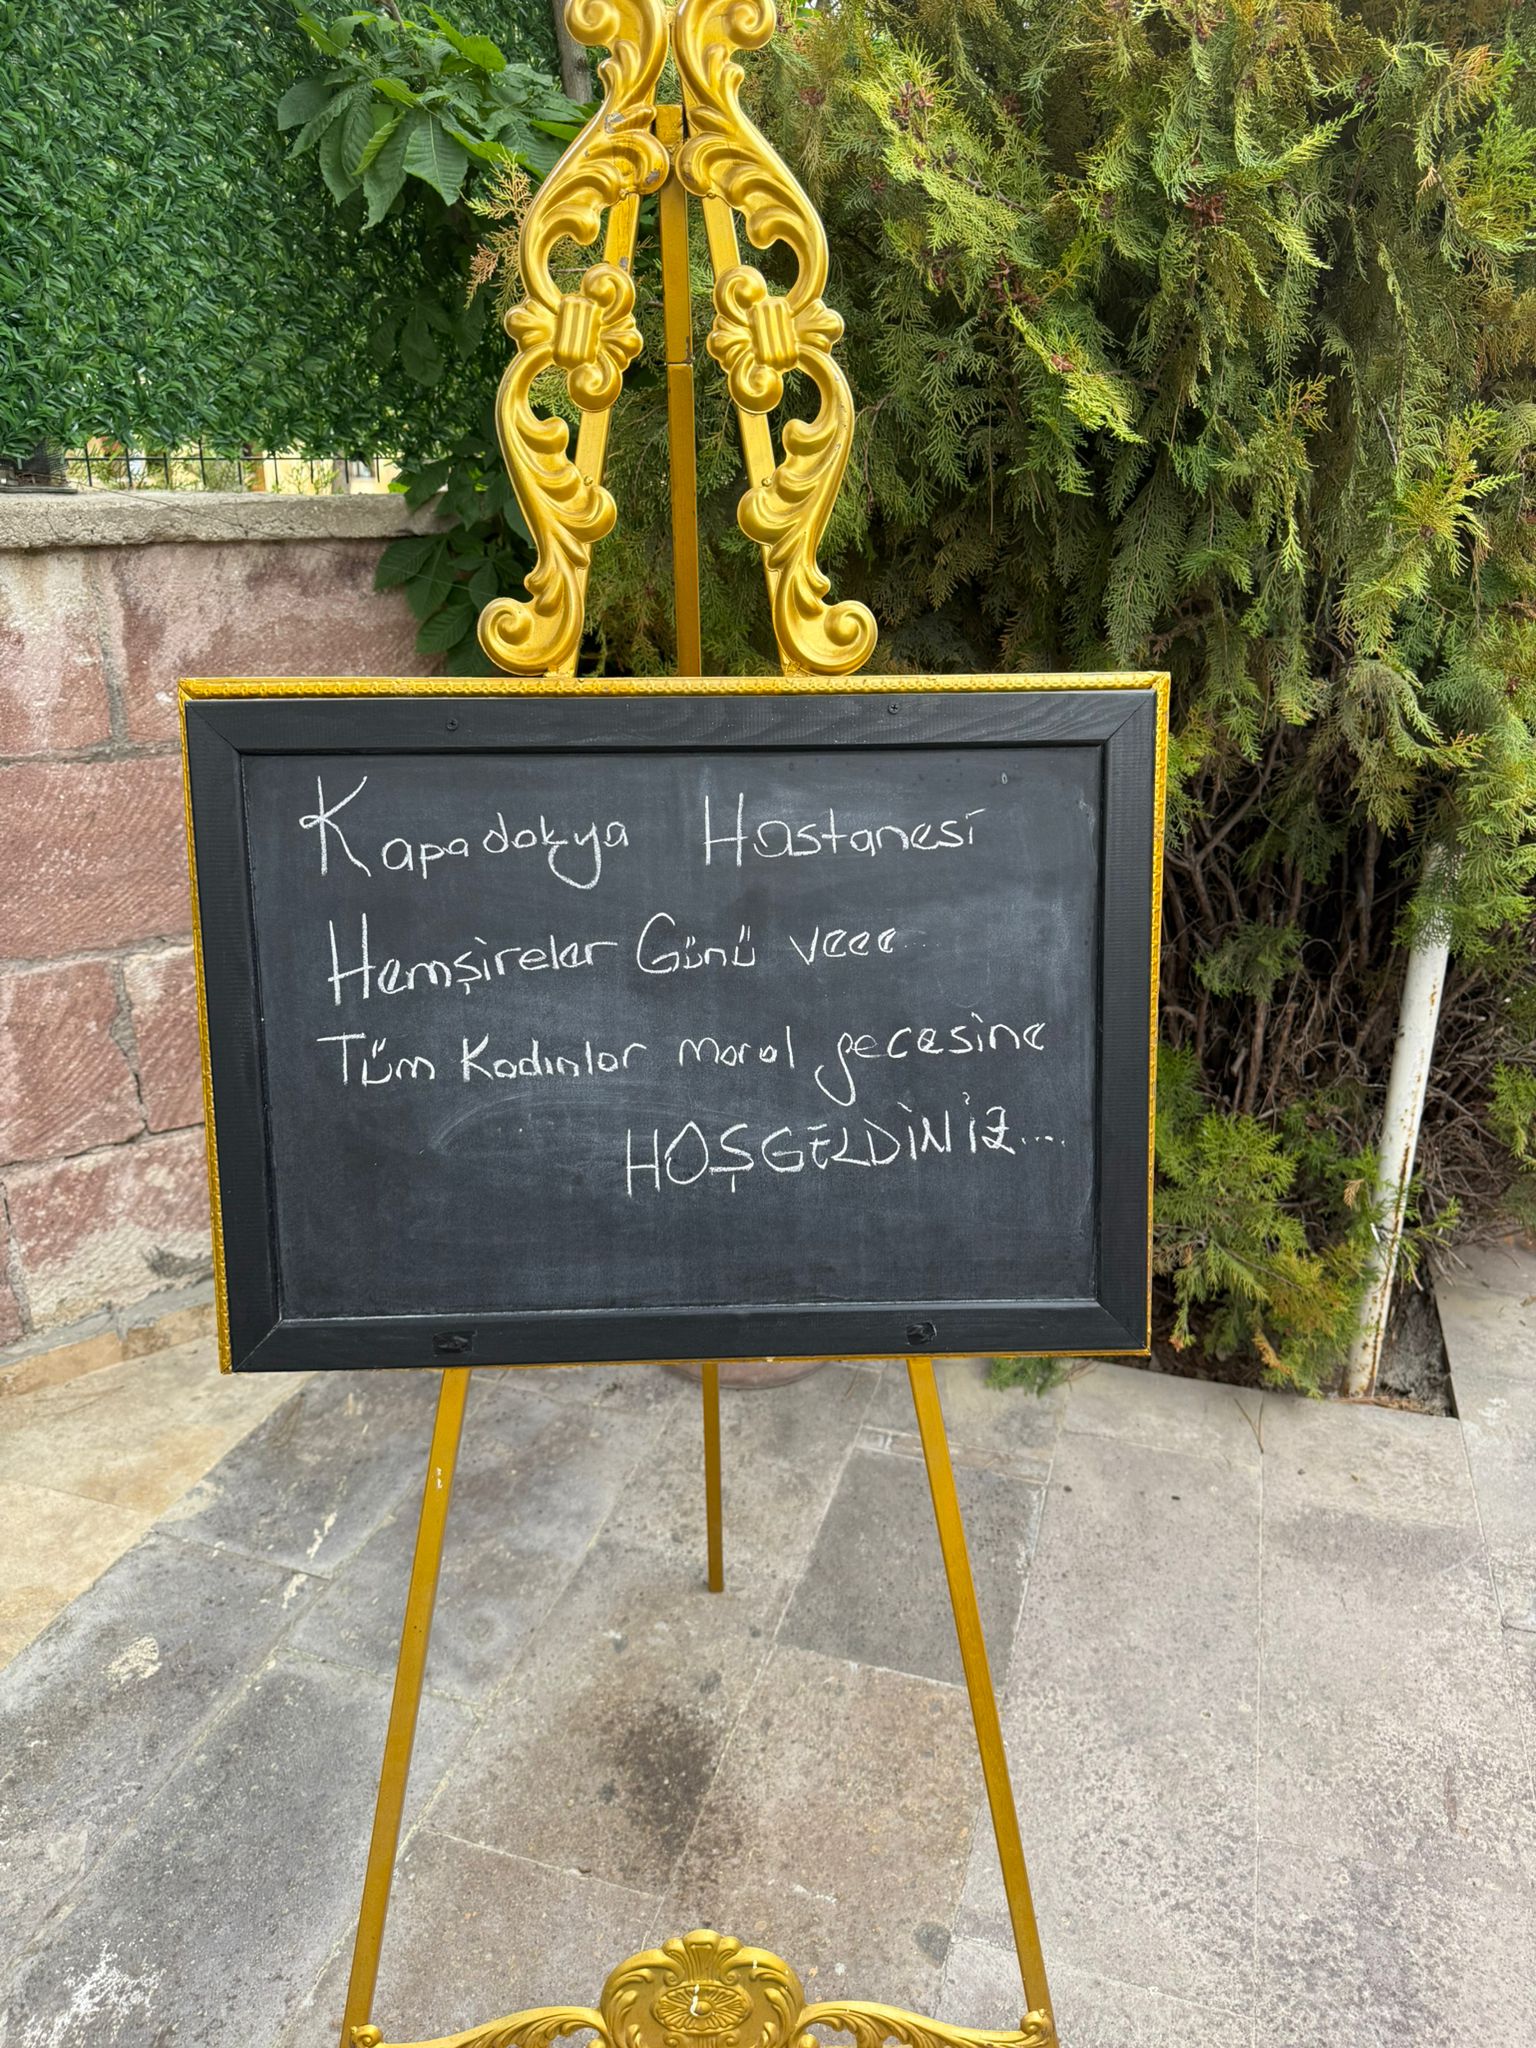 Kapadokya Hastanesi
Hemşireler Günü veee...
Tüm Kadınlar moral gecesine
HOŞGELDİNİZ....